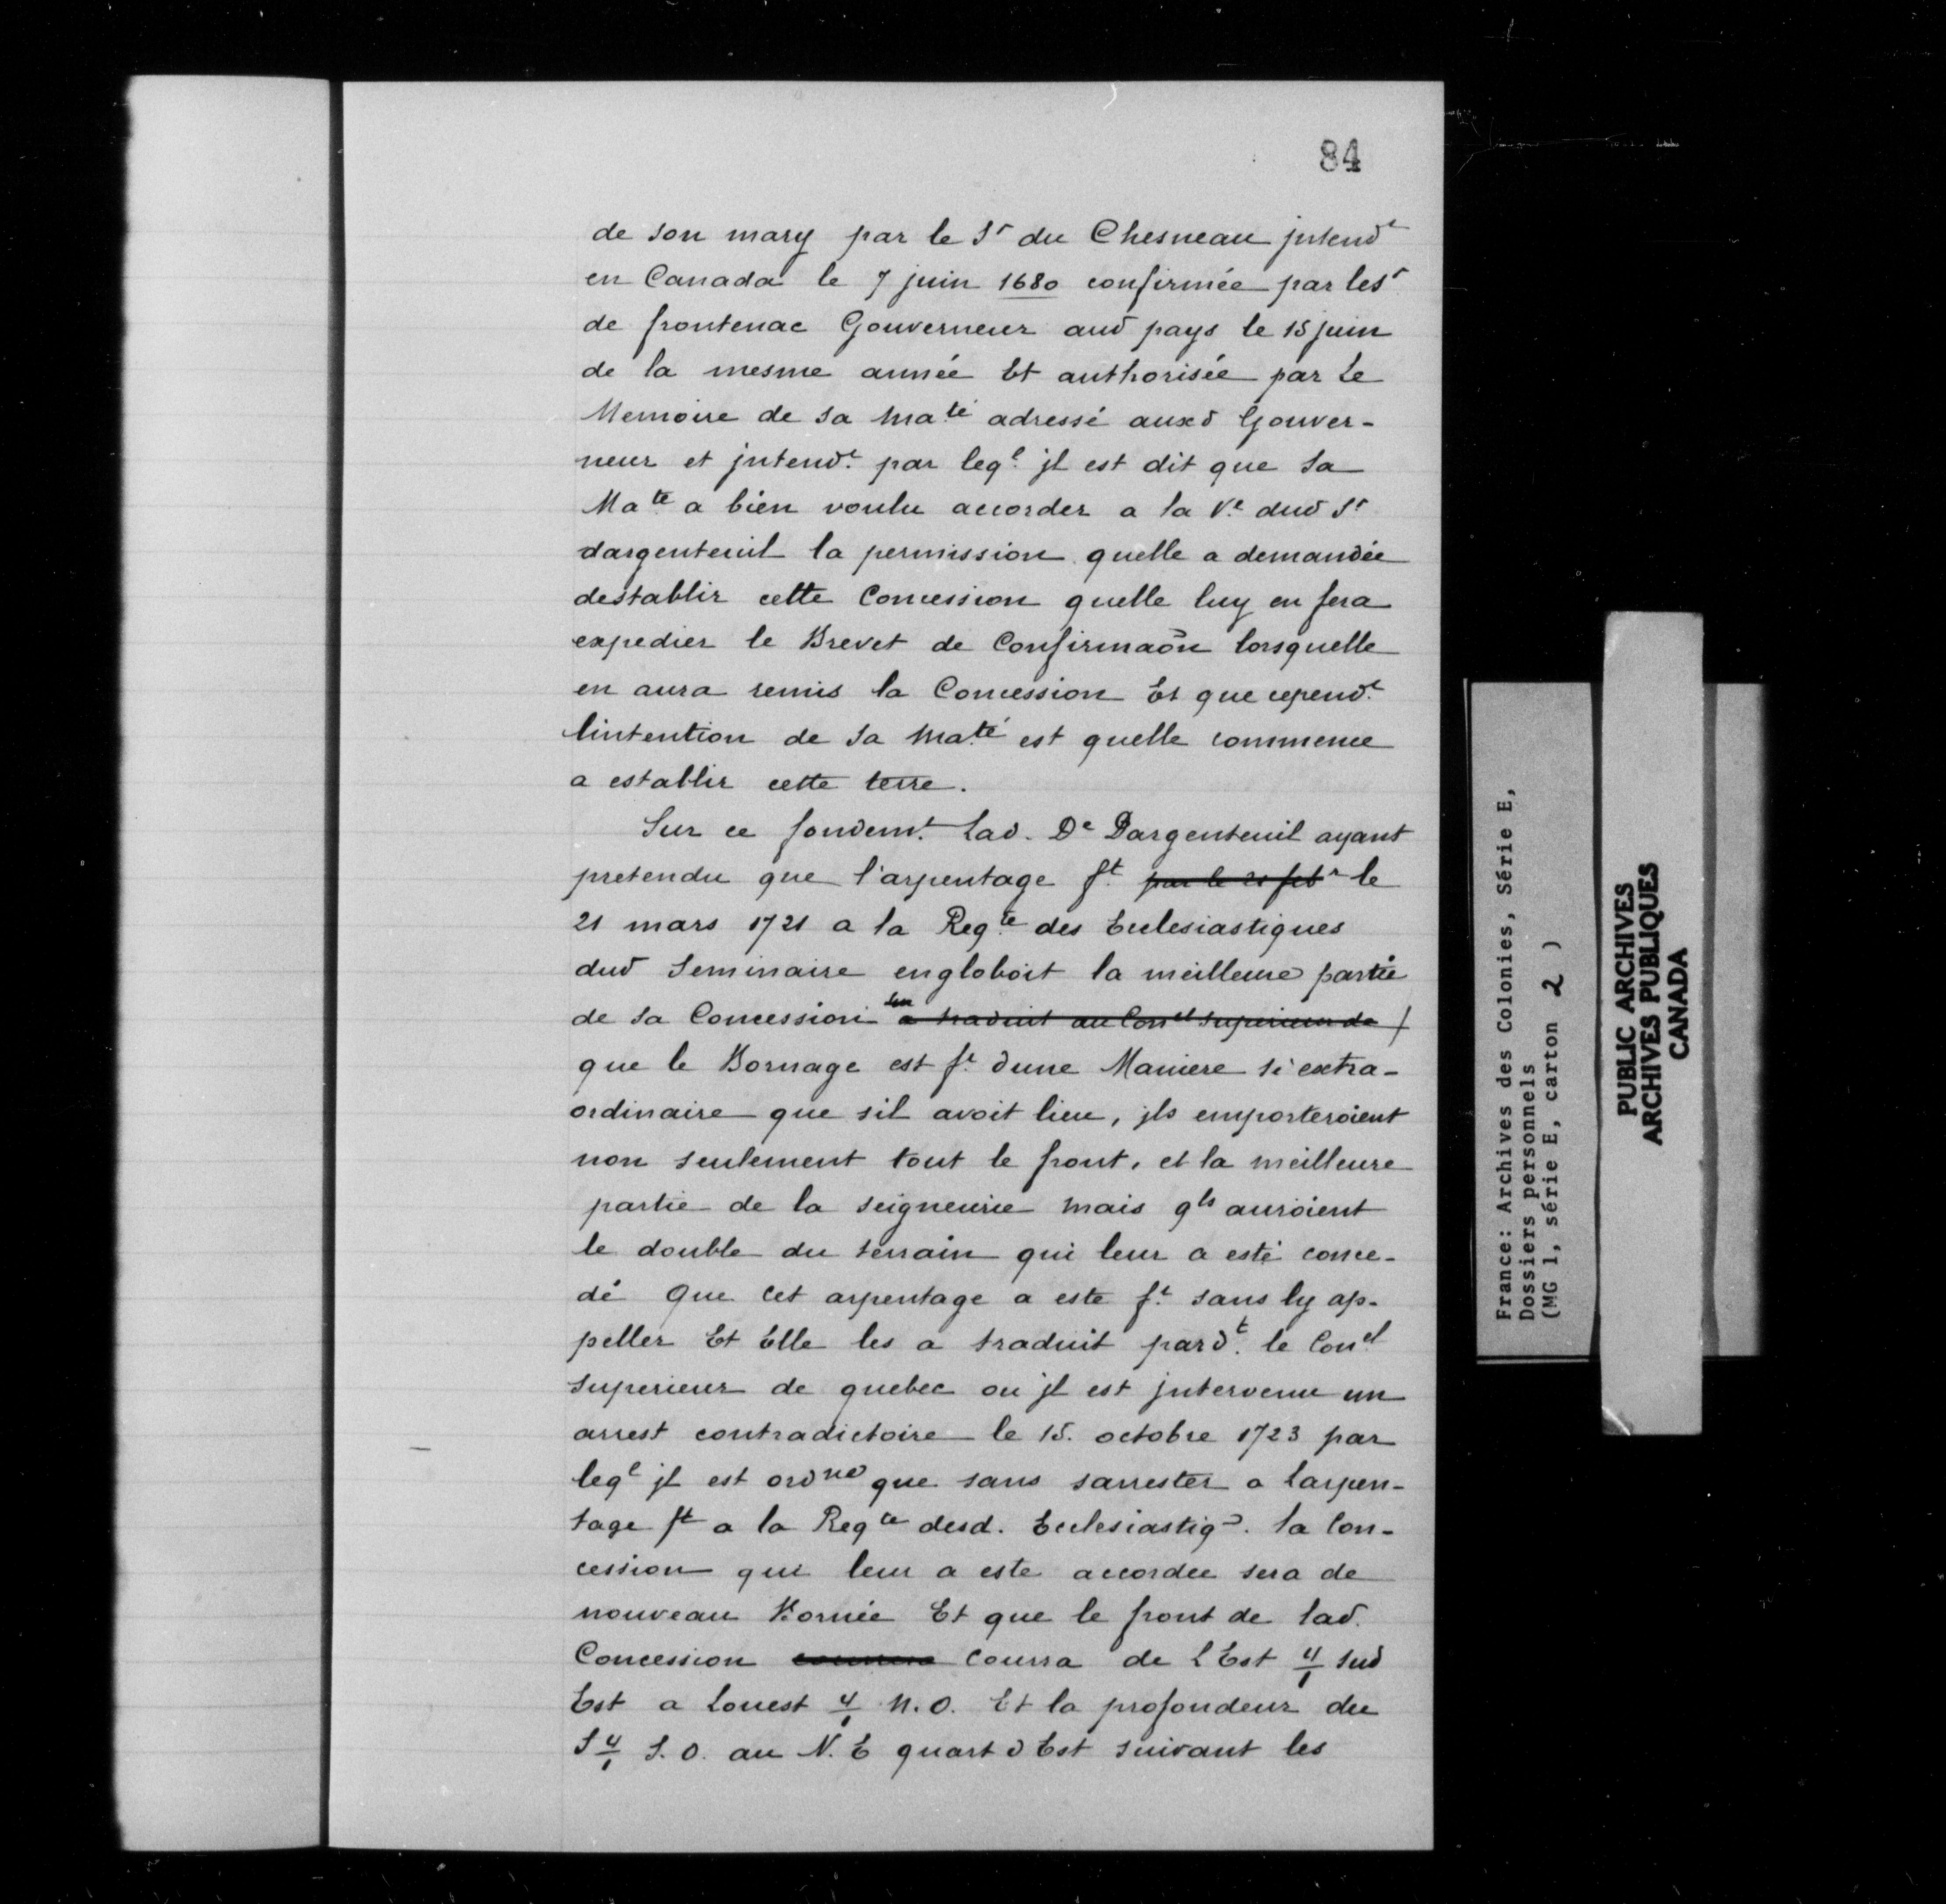 84
de son mary par le Sr du Chesneau jntendt
en Canada le 7 juin 1680 confirmée par les r
de frontenac Gouverneur aud pays le 15 juin
de la mesme année Et authorisée par Le
Memoire de sa Maté adressé auxd Gouver-
neur et jntendt. par leql. jl est dit que sa
Mate a bien voulu accorder a la Ve dud Sr
dargenteuil la permission quelle a demandée
destablir cette Concession quelle luy en fera
expedier le Brevet de Confirmaõn lorsquelle
en aura remis la Concession Et que cependt.
lintention de sa Maté est quelle commence
a establir cette terre.
Sur ce fondemt. Lad. De Dargenteuil ayant
pretendu que l'arpentage ft. par le 21 febr le
21 mars 1721 a la Reqte des Ecclesiastiques
dud Seminaire engloboit la meilleure partie
de sa Concession a traduit au Conel superieur de
que le Bornage est ft. dune Maniere si extra-
ordinaire que sil avoit lieu, jls emporteroient
non seulement tout le front, et la meilleure
partie de la seigneurie mais qls auroient
le double du terrain qui leur a esté conce-
dé Que Cet arpentage a este ft. sans ly ap-
peller Et Elle les a traduit pardt. le Conel
superieur de quebec ou jl est jntervenu un
arrest contradictoire le 15. octobre 1723 par
leql jl est ordné que sans sarrester a Larpen-
tage ft a la Reqte desd. Ecclesiastiqs. la Con-
cession qui leur a este accordée sera de
nouveau Bornée Et que le front de lad.
Concession courera Courra de L Est 4/1 sud
Est a Louest 4/1 N.O. Et la profondeur du
S 4/1 S.O. au N.E quart d Est suivant les
France: Archives des Colonies, Série E,
Dossiers personnels
(MG 1, série E, carton 2 )
PUBLIC ARCHIVES
ARCHIVES PUBLIQUES
CANADA